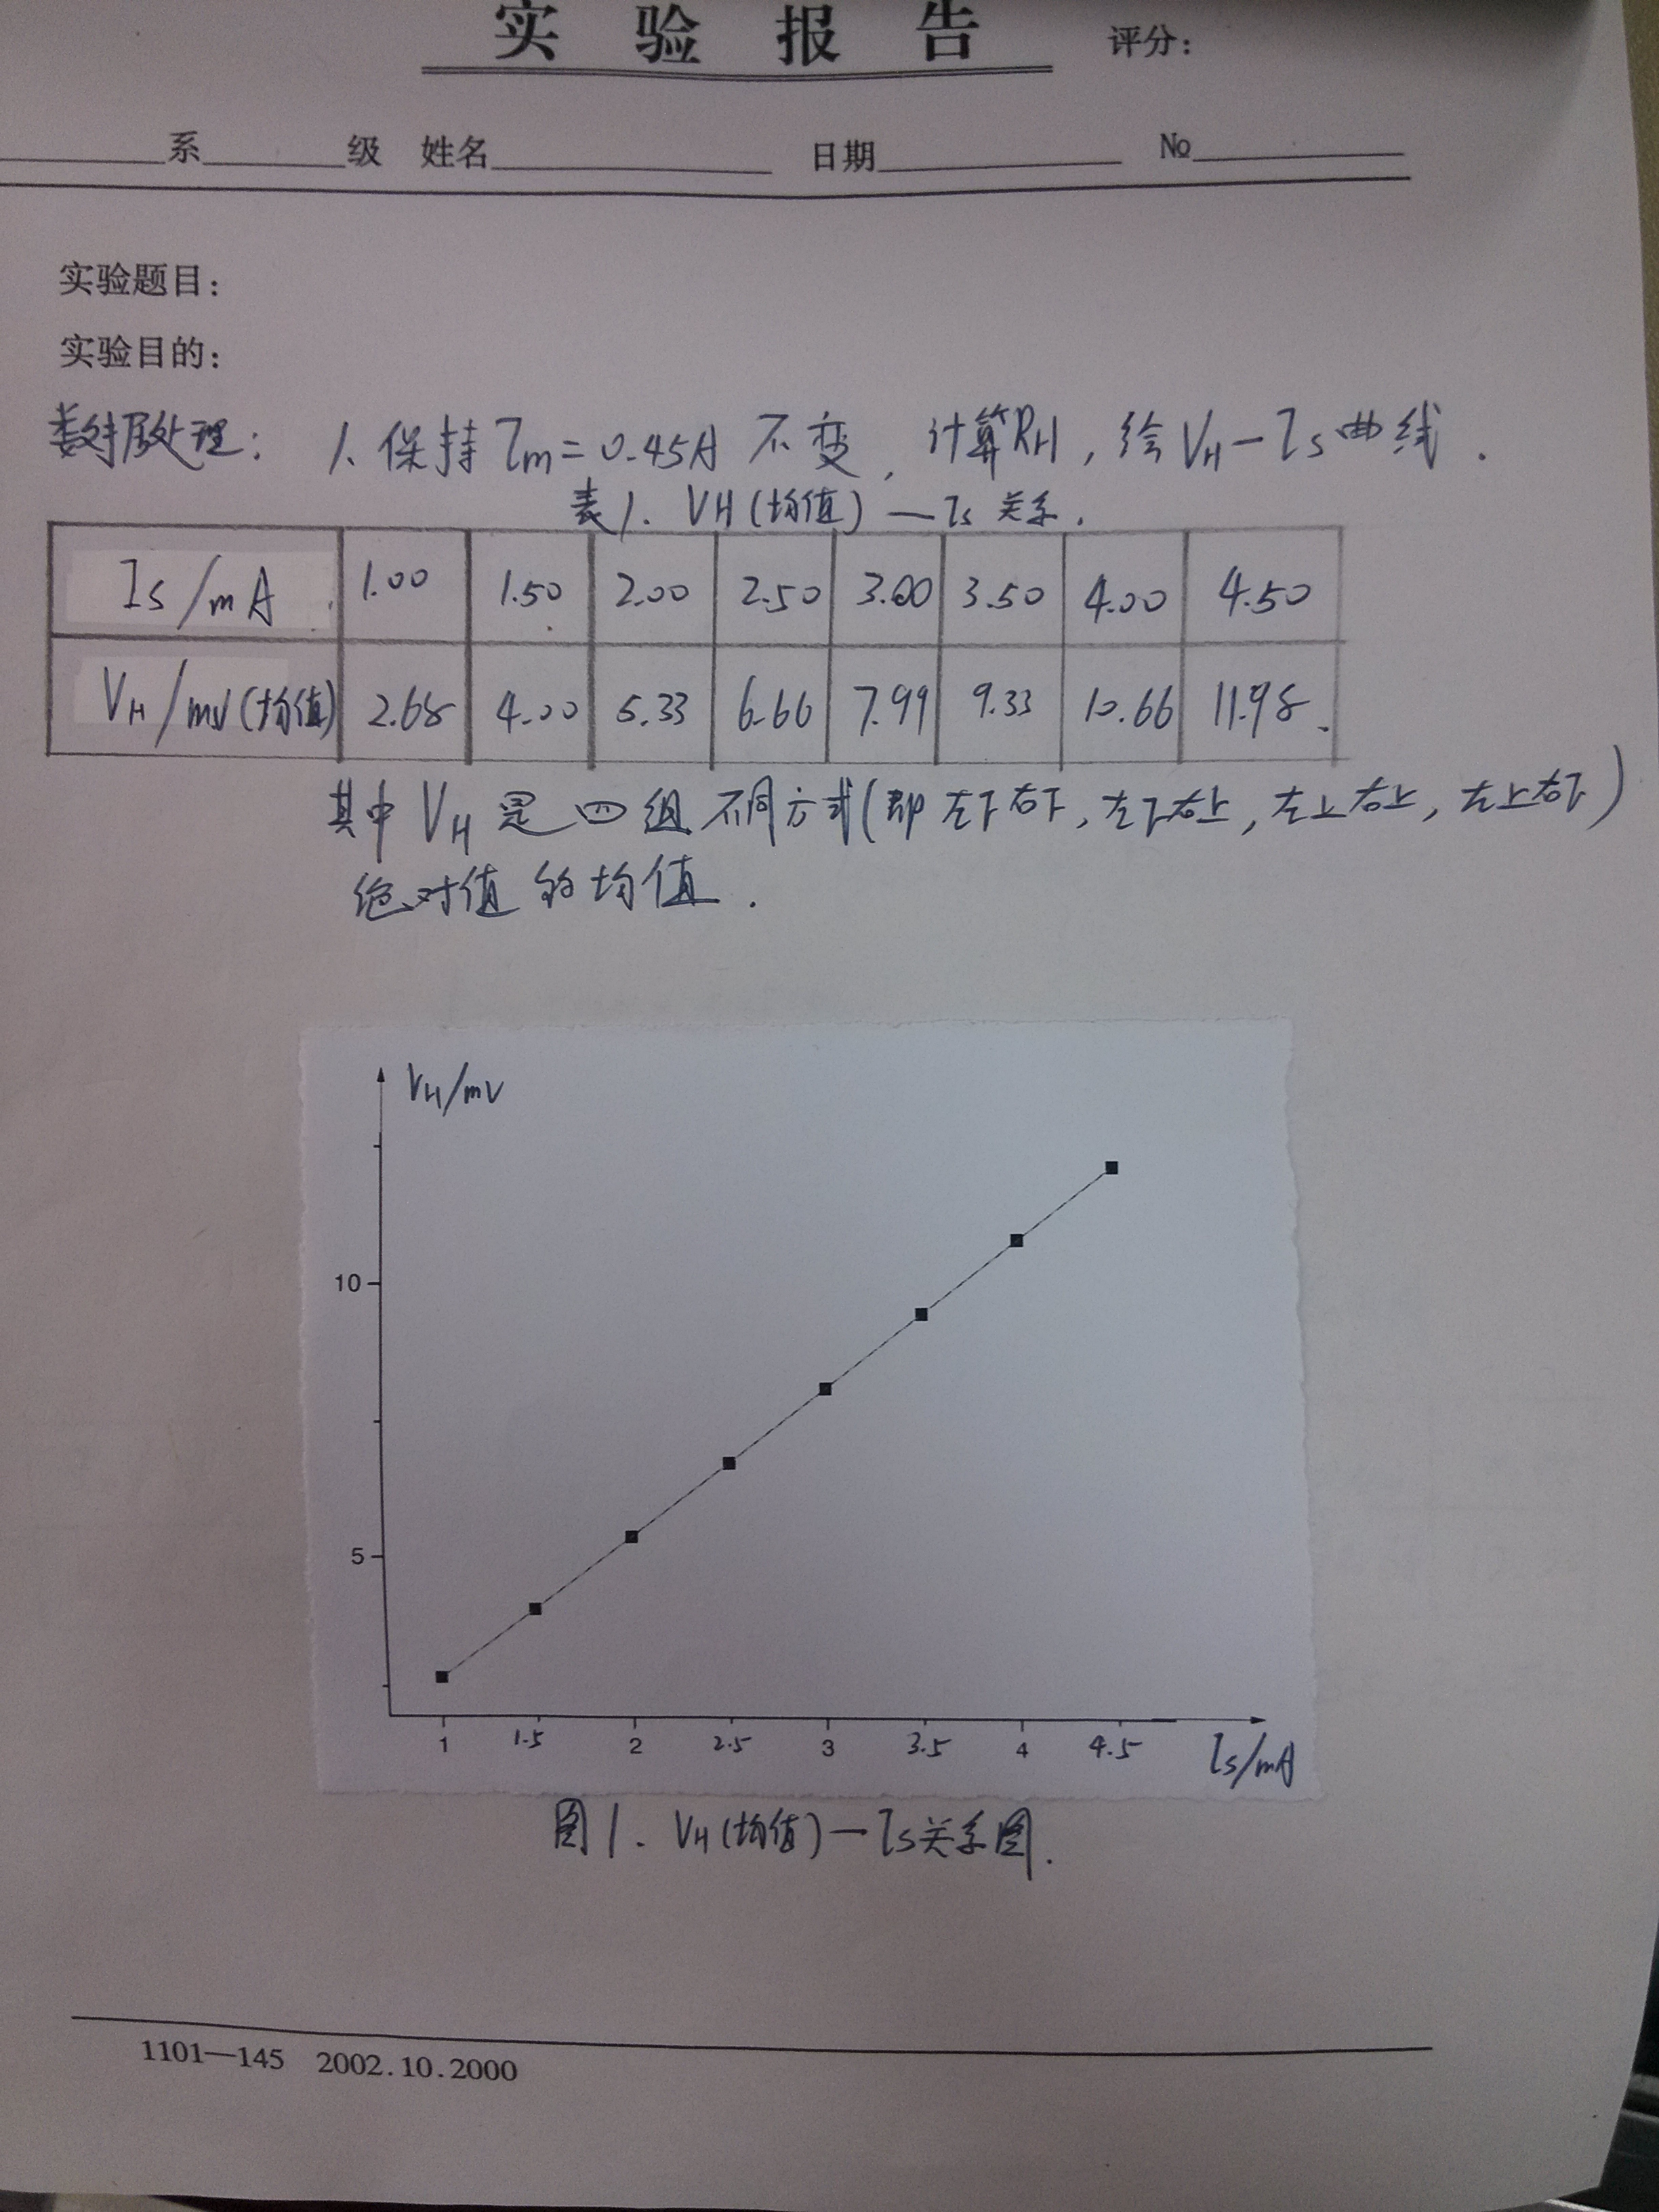 实验报告 评分:
系 级 姓名 日期 №
实验题目:
实验目的:
数据处理: 1.保持Im=0.45A不变,计算RH,绘VH—Is曲线.
表1. VH(均值)—Is关系.
Is/mA 1.00 1.50 2.00 2.50 3.00 3.50 4.00 4.50
VH/mV(均值) 2.68 4.00 5.33 6.66 7.99 9.33 10.66 11.98
其中VH是四组不同方式(即左下右下,左下右上,左上右上,左上右下)
绝对值的均值.
VH/mV
10
5
1 1.5 2 2.5 3 3.5 4 4.5 Is/mA
图1. VH(均值)—Is关系图.
1101—145 2002.10.2000